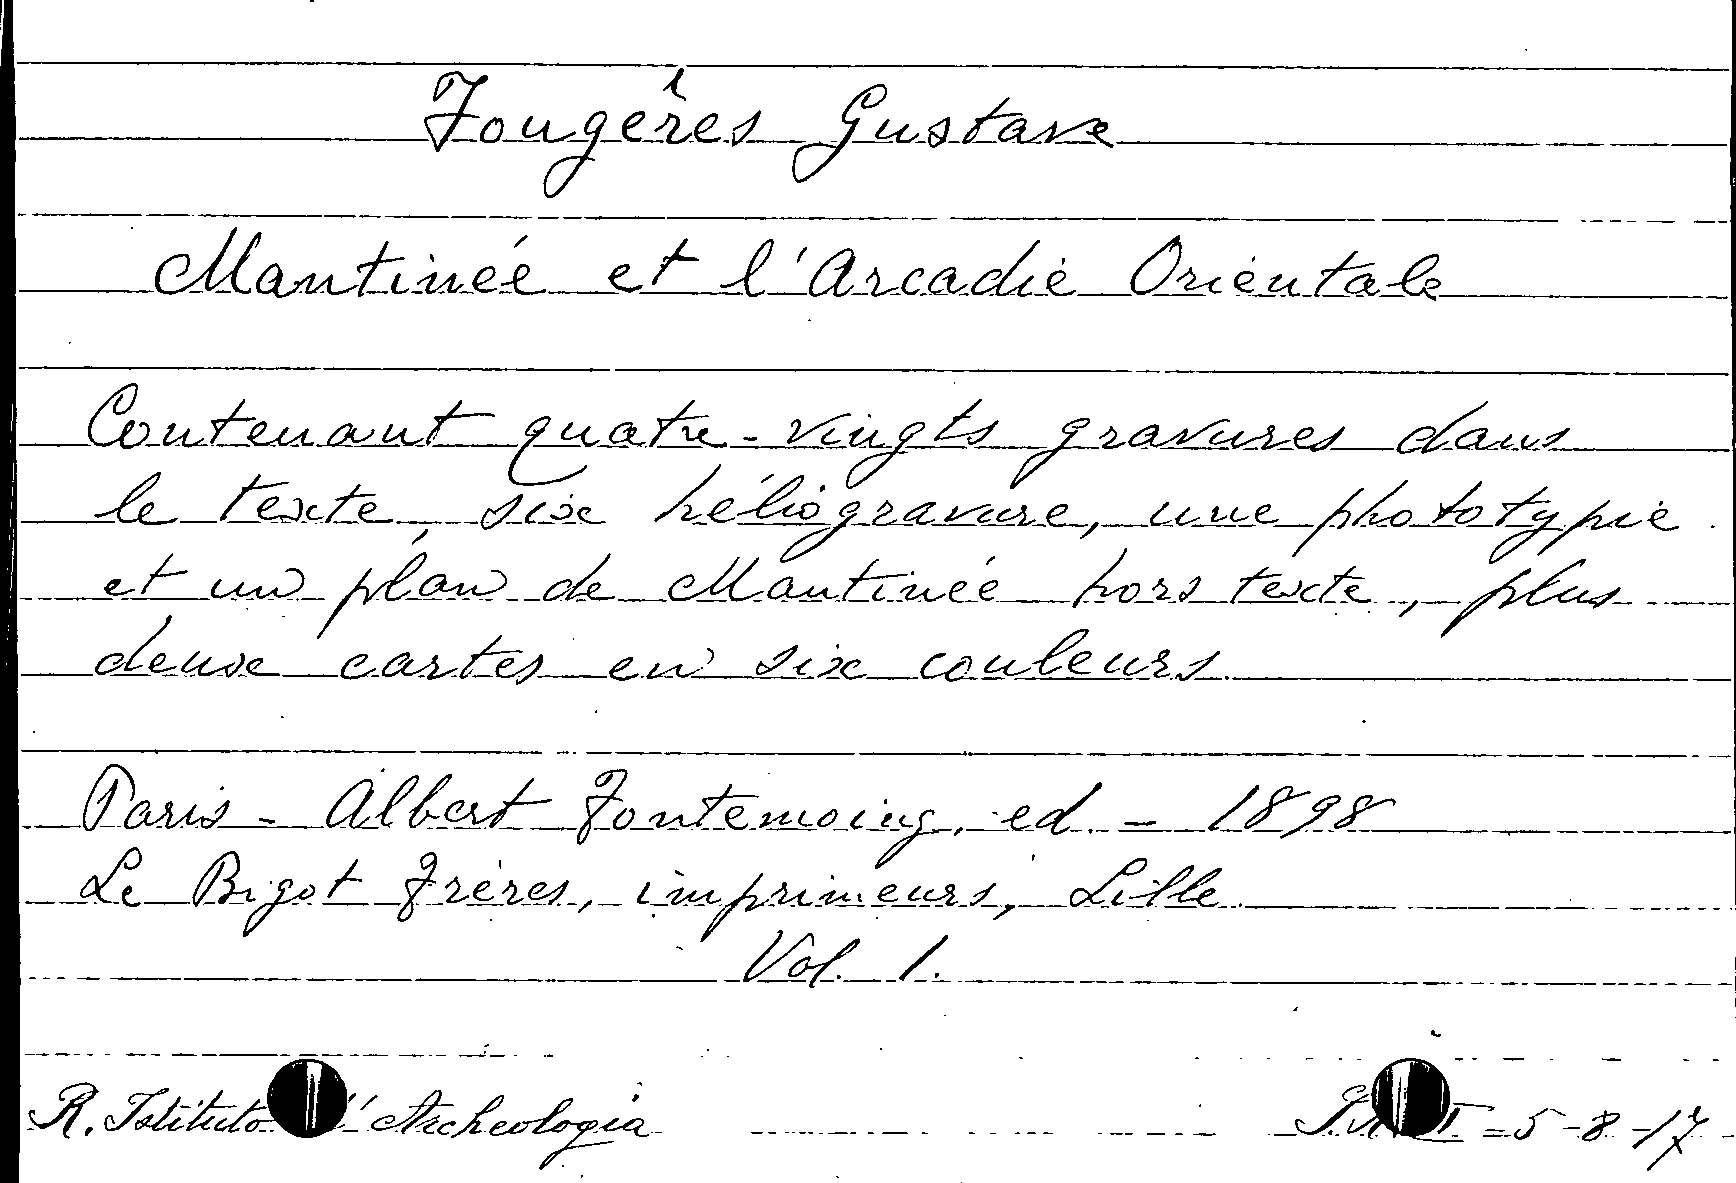 Fougères Gustave
Mantinée et l'Arcadie Orientale
Contenant quatre-vingts gravures dans
le texte, six héliogravure, une phototypie
et un plan de Mantinée hors texte, plus
deux cartes en six couleurs
Paris - Albert Fontemoing, ed. - 1898
Le Bigot Frères, imprimeurs, Lille
Vol. 1.
R. Istituto d' Archeologia
5-8-17